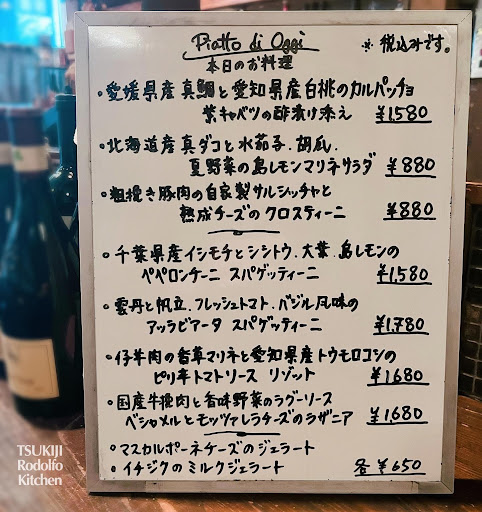 Piatto di Oggi
本日のお料理
※ 税込みです。
・愛媛県産真鯛と愛知県産白桃のカルパッチョ
紫キャベツの酢漬け添え ¥1,580
・北海道産真ダコと水茄子、胡瓜、
夏野菜の島レモンマリネサラダ ¥880
・粗挽き豚肉の自家製サルシッチャと
熟成チーズのクロスティーニ ¥880
・千葉県産イシモチとシシトウ、大葉、島レモンの
ペペロンチーニ スパゲッティーニ ¥1,580
・雲丹と帆立、フレッシュトマト、バジル風味の
アッラビアータ スパゲッティーニ ¥1,780
・仔羊肉の香草マリネと愛知県産トウモロコシの
ピリ辛トマトソース リゾット ¥1,680
・国産牛挽肉と香味野菜のラグーソース
ベシャメルとモッツァレラチーズのラザニア ¥1,680
・マスカルポーネチーズのジェラート
・イチジクのミルクジェラート 各¥650
TSUKIJI
Rodolfo
Kitchen